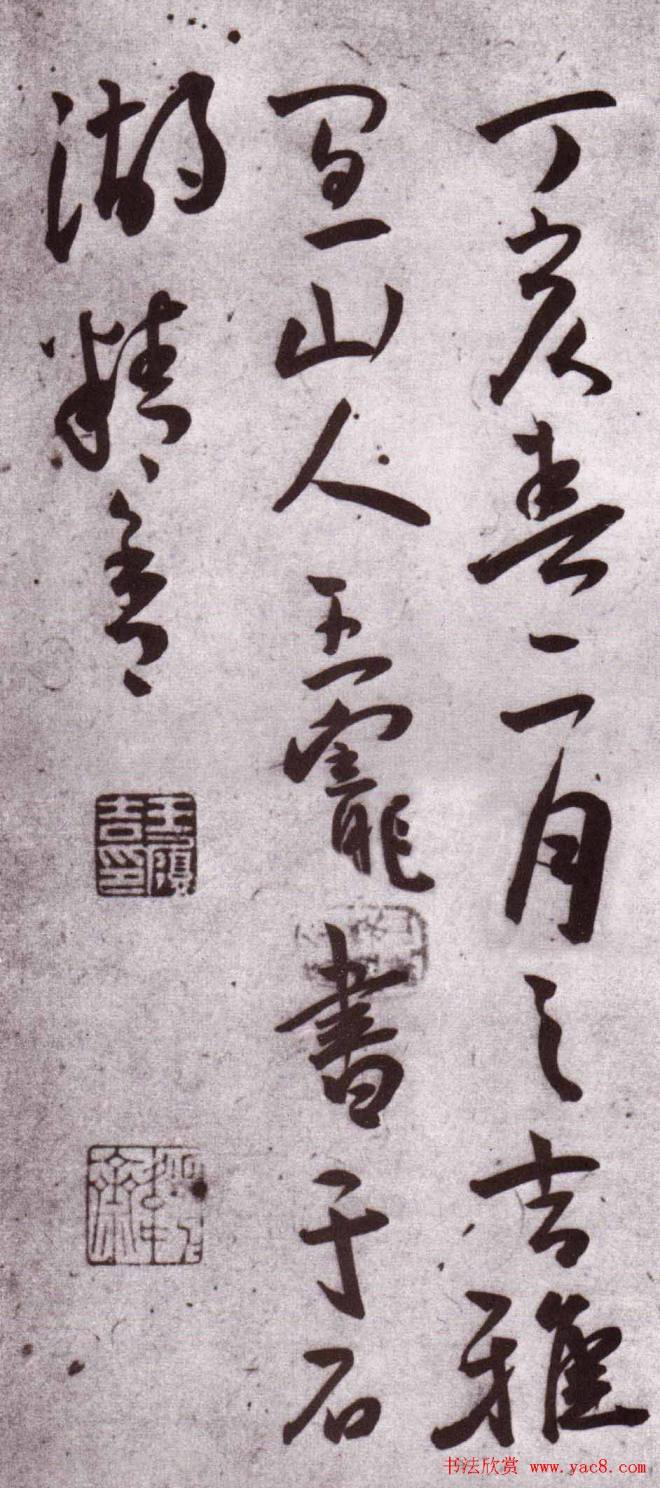 丁亥春二月之吉雅
宜山人王寵書于石
湖精舍
王履
吉印
书法欣赏 www.yac8.com